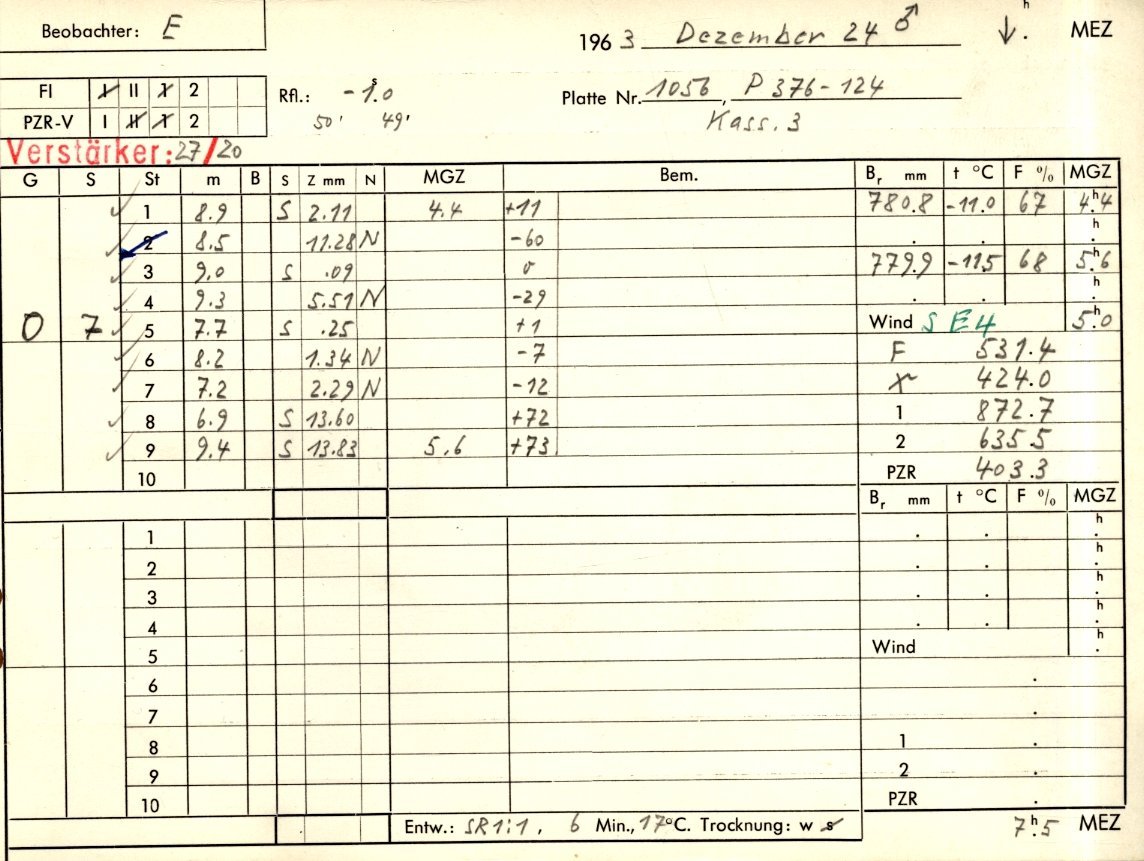 Beobachter: E
1963 Dezember 24 ♂ ↓. h MEZ
FI I II 1 2
Rfl.: -1.0 s
Platte Nr. 1056, P 376-124
PZR-V I II 1 2
50' 49'
Kass. 3
Verstärker: 27/20
G S St m B S Z mm N MGZ Bem. Br mm t °C F % MGZ
1 8.9 S 2.11 4.4 +11 780.8 -11.0 67 4h.4
2 8.5 11.28 N -60 . . h.
3 9.0 S .09 0 779.9 -11.5 68 5h.6
4 9.3 5.51 N -29 . . h.
0 7 5 7.7 S .25 +1 Wind S E4 5h.0
6 8.2 1.34 N -7 F 531.4
7 7.2 2.29 N -12 424.0
8 6.9 S 13.60 +72 1 872.7
9 9.4 S 13.83 5.6 +73 2 635.5
10 PZR 403.3
Br mm t °C F % MGZ
1 . . h.
2 . . h.
3 . . h.
4 . . h.
5 Wind h.
6 .
7 .
8 1 .
9 2 .
10 PZR .
Entw.: SR 1:1, 6 Min., 17°C. Trocknung: w s 7h.5 MEZ